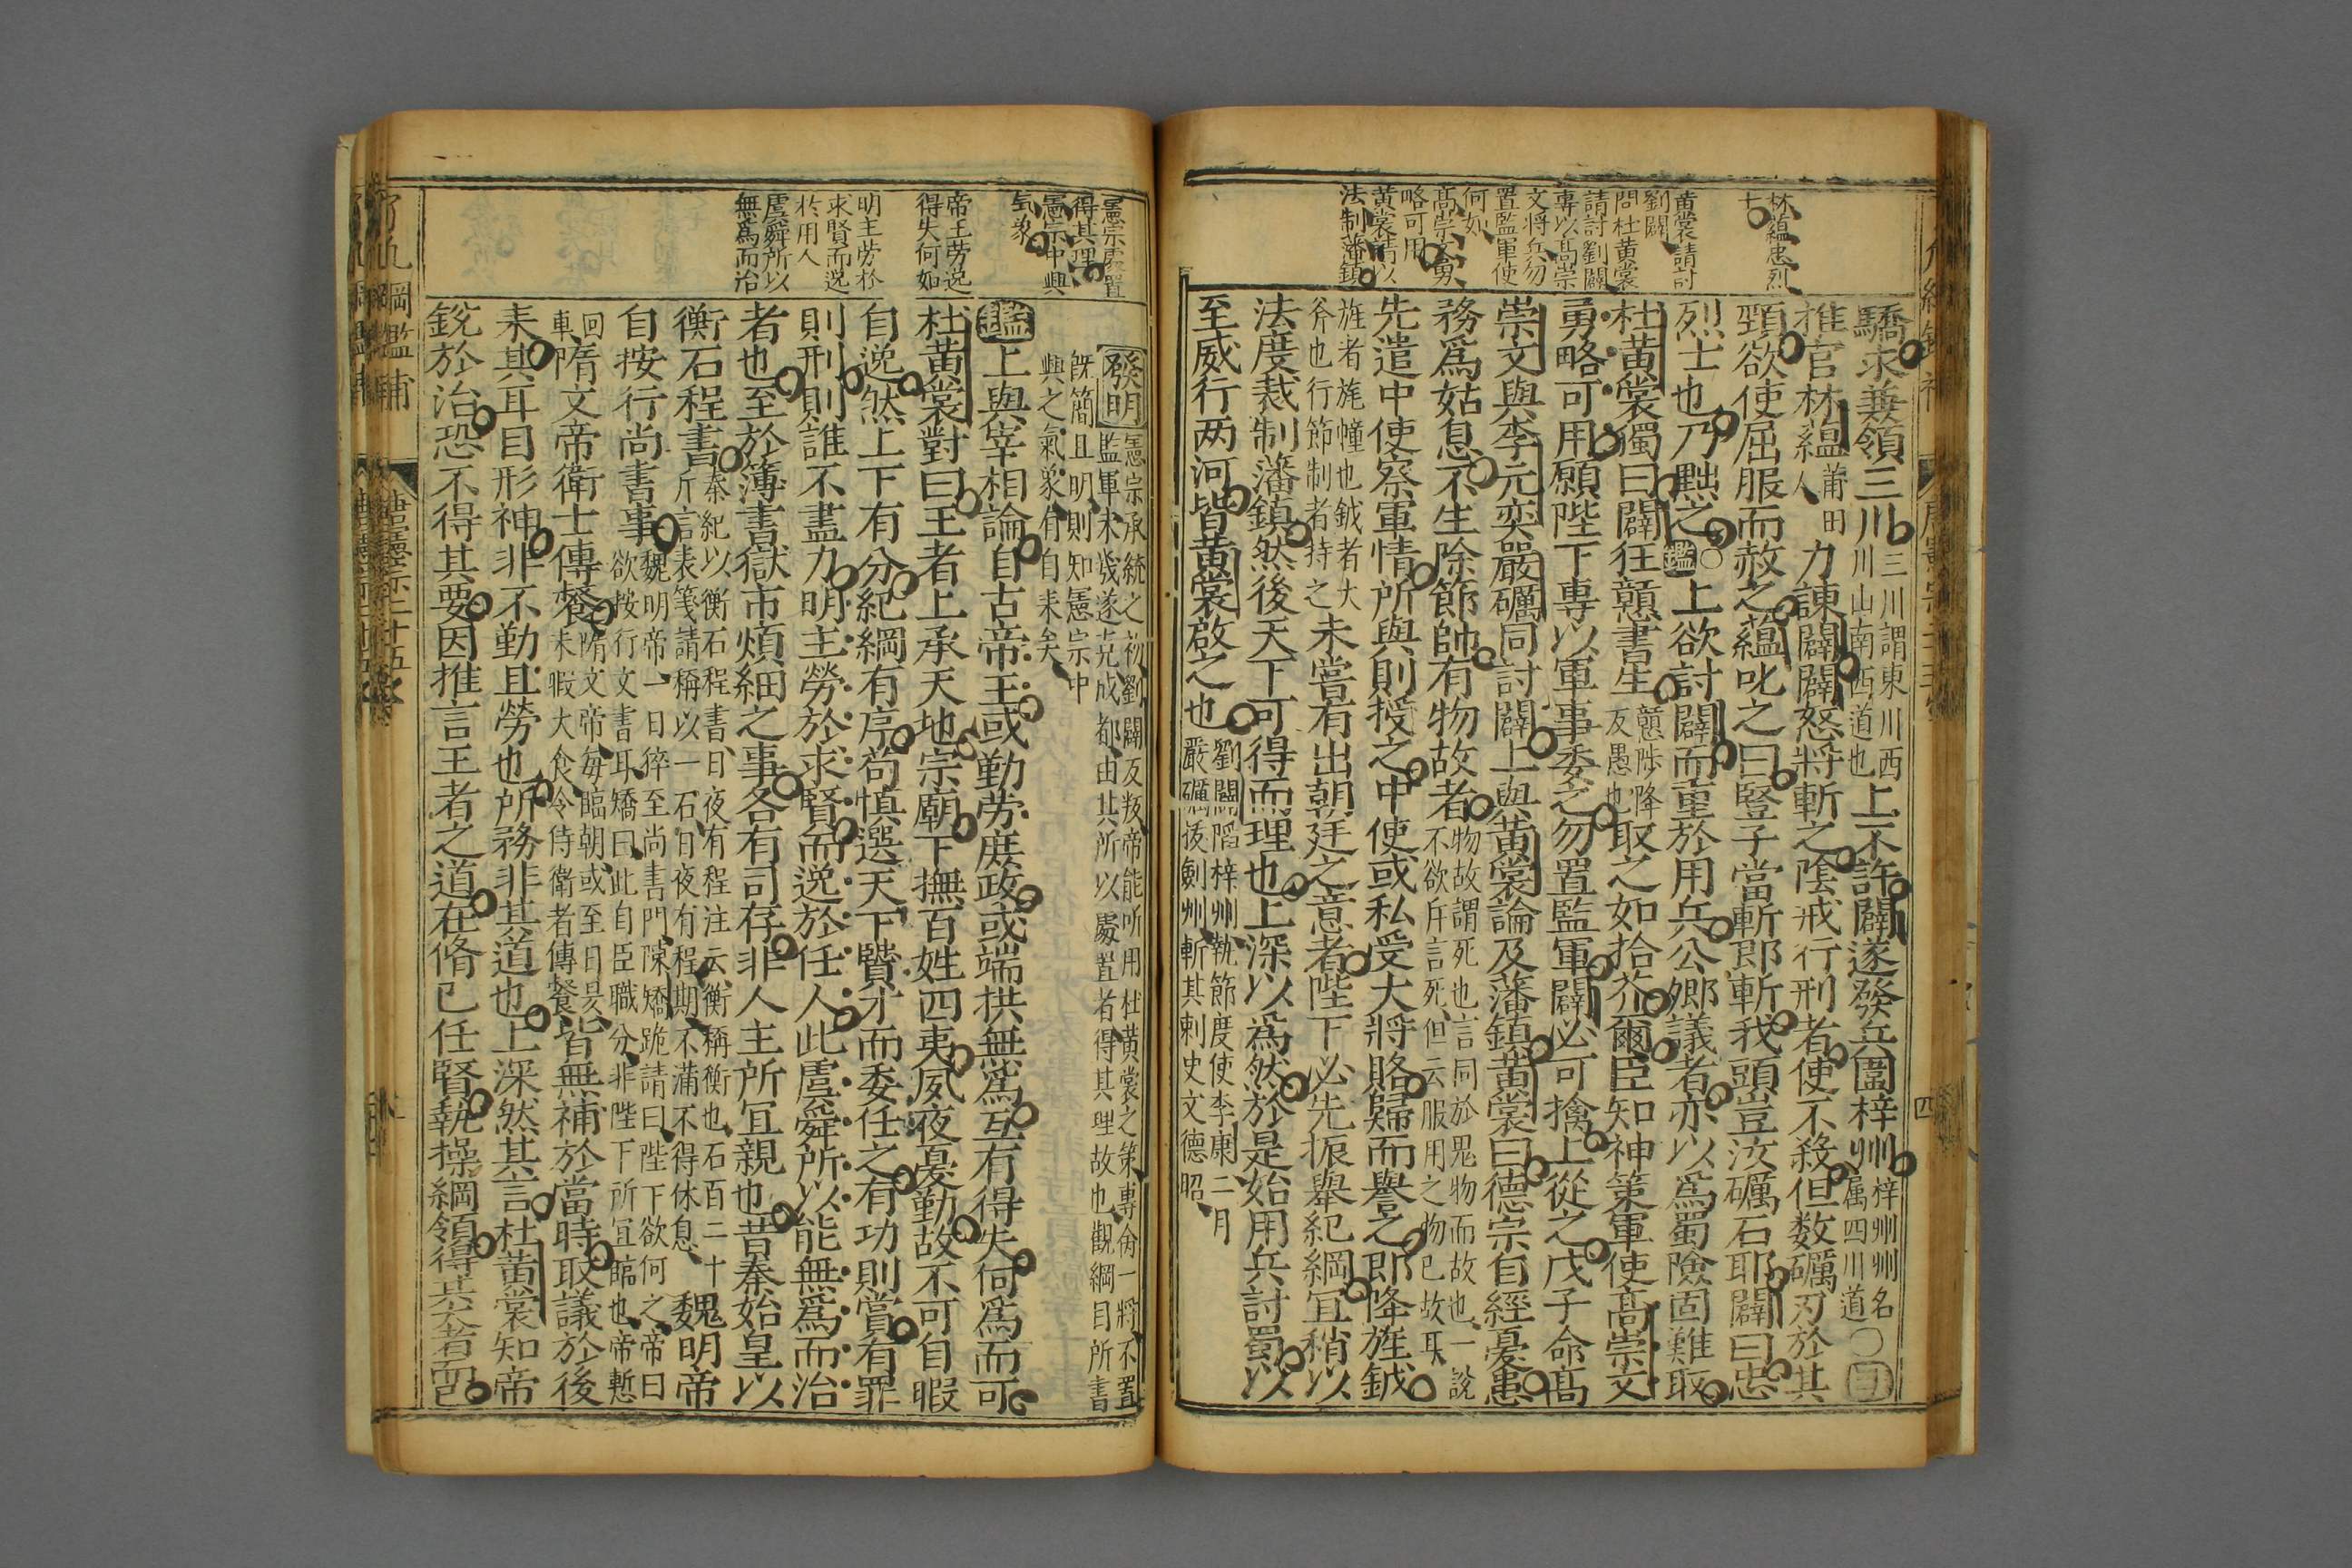 林蘊忠烈
士
黃裳請討
劉闢
問杜黃裳
請討劉闢
專以髙崇
文將兵勿
置監軍使
何如
髙崇文勇
略可用
黃裳請以
法制藩鎮
驕求兼領三川三川謂東川西川山南西道也上不許闢遂發兵圍梓州梓州州名属四川道〇
推官林蘊莆田人力諫闢闢怒將斬之陰戒行刑者使不殺但数礪刃於其
頸欲使屈服而赦之蘊叱之曰豎子當斬即斬我頭豈汝礪石耶闢曰忠
烈士也乃黜之〇鑑上欲討闢而重於用兵公卿議者亦以爲蜀險固難取
杜黃裳獨曰闢狂戇書生戇陟降反愚也取之如拾芥爾臣知神策軍使髙崇文
勇略可用願陛下專以軍事委之勿置監軍闢必可擒上從之戊子命髙
崇文與李元奕嚴礪同討闢上與黃裳論及藩鎮黃裳曰德宗自經憂患
務爲姑息不生除節帥有物故者物故謂死也言同於鬼物而故也一說不欲斥言死但云服用之物已故耳
先遣中使察軍情所與則授之中使或私受大將賂歸而譽之即降旌鉞
旌者旄幢也鉞者大斧也行節制者持之未嘗有出朝廷之意者陛下必先振舉紀綱宜稍以
法度裁制藩鎮然後天下可得而理也上深以爲然於是始用兵討蜀以
至威行两河皆黃裳啟之也劉闢陷梓州執節度使李康二月嚴礪拔劍州斬其刺史文德昭
憲宗處置
得其理
憲宗中興
気象
帝王勞逸
得失何如
明主劳於
求賢而逸
於用人
虞舜所以
無爲而治
發明憲宗承統之初劉闢反叛帝能听用杜黄裳之策專倚一將不置
監軍未幾遂克成都由其所以處置者得其理故也觀綱目所書
既簡且明則知憲宗中
興之氣象有自来矣
鑑上與宰相論自古帝王或勤劳庶政或端拱無爲互有得失何爲而可
杜黃裳對曰王者上承天地宗廟下撫百姓四夷夙夜憂勤故不可自暇
自逸然上下有分紀綱有序苟慎選天下賢才而委任之有功則賞有罪
則刑則誰不盡力明主勞於求賢而逸於任人此虞舜所以能無爲而治
者也至於簿書獄市煩細之事各有司存非人主所宜親也昔秦始皇以
衡石程書秦紀以衡石程書日夜有程注云衡稱衡也石百二十斤言表箋請稱以一石日夜有程期不滿不得休息魏明帝
自按行尚書事魏明帝一日猝至尚書門陳矯跪請曰陛下欲何之帝曰欲按行文書耳矯曰此自臣職分非陛下所宜臨也帝慙
回車隋文帝衛士傳餐隋文帝每臨朝或至日昃未暇大食令侍衛者傳餐皆無補於當時取譏於後
来其耳目形神非不勤且勞也所務非其道也上深然其言杜黃裳知帝
銳於治恐不得其要因推言王者之道在脩己任賢執操綱領得其大者而已